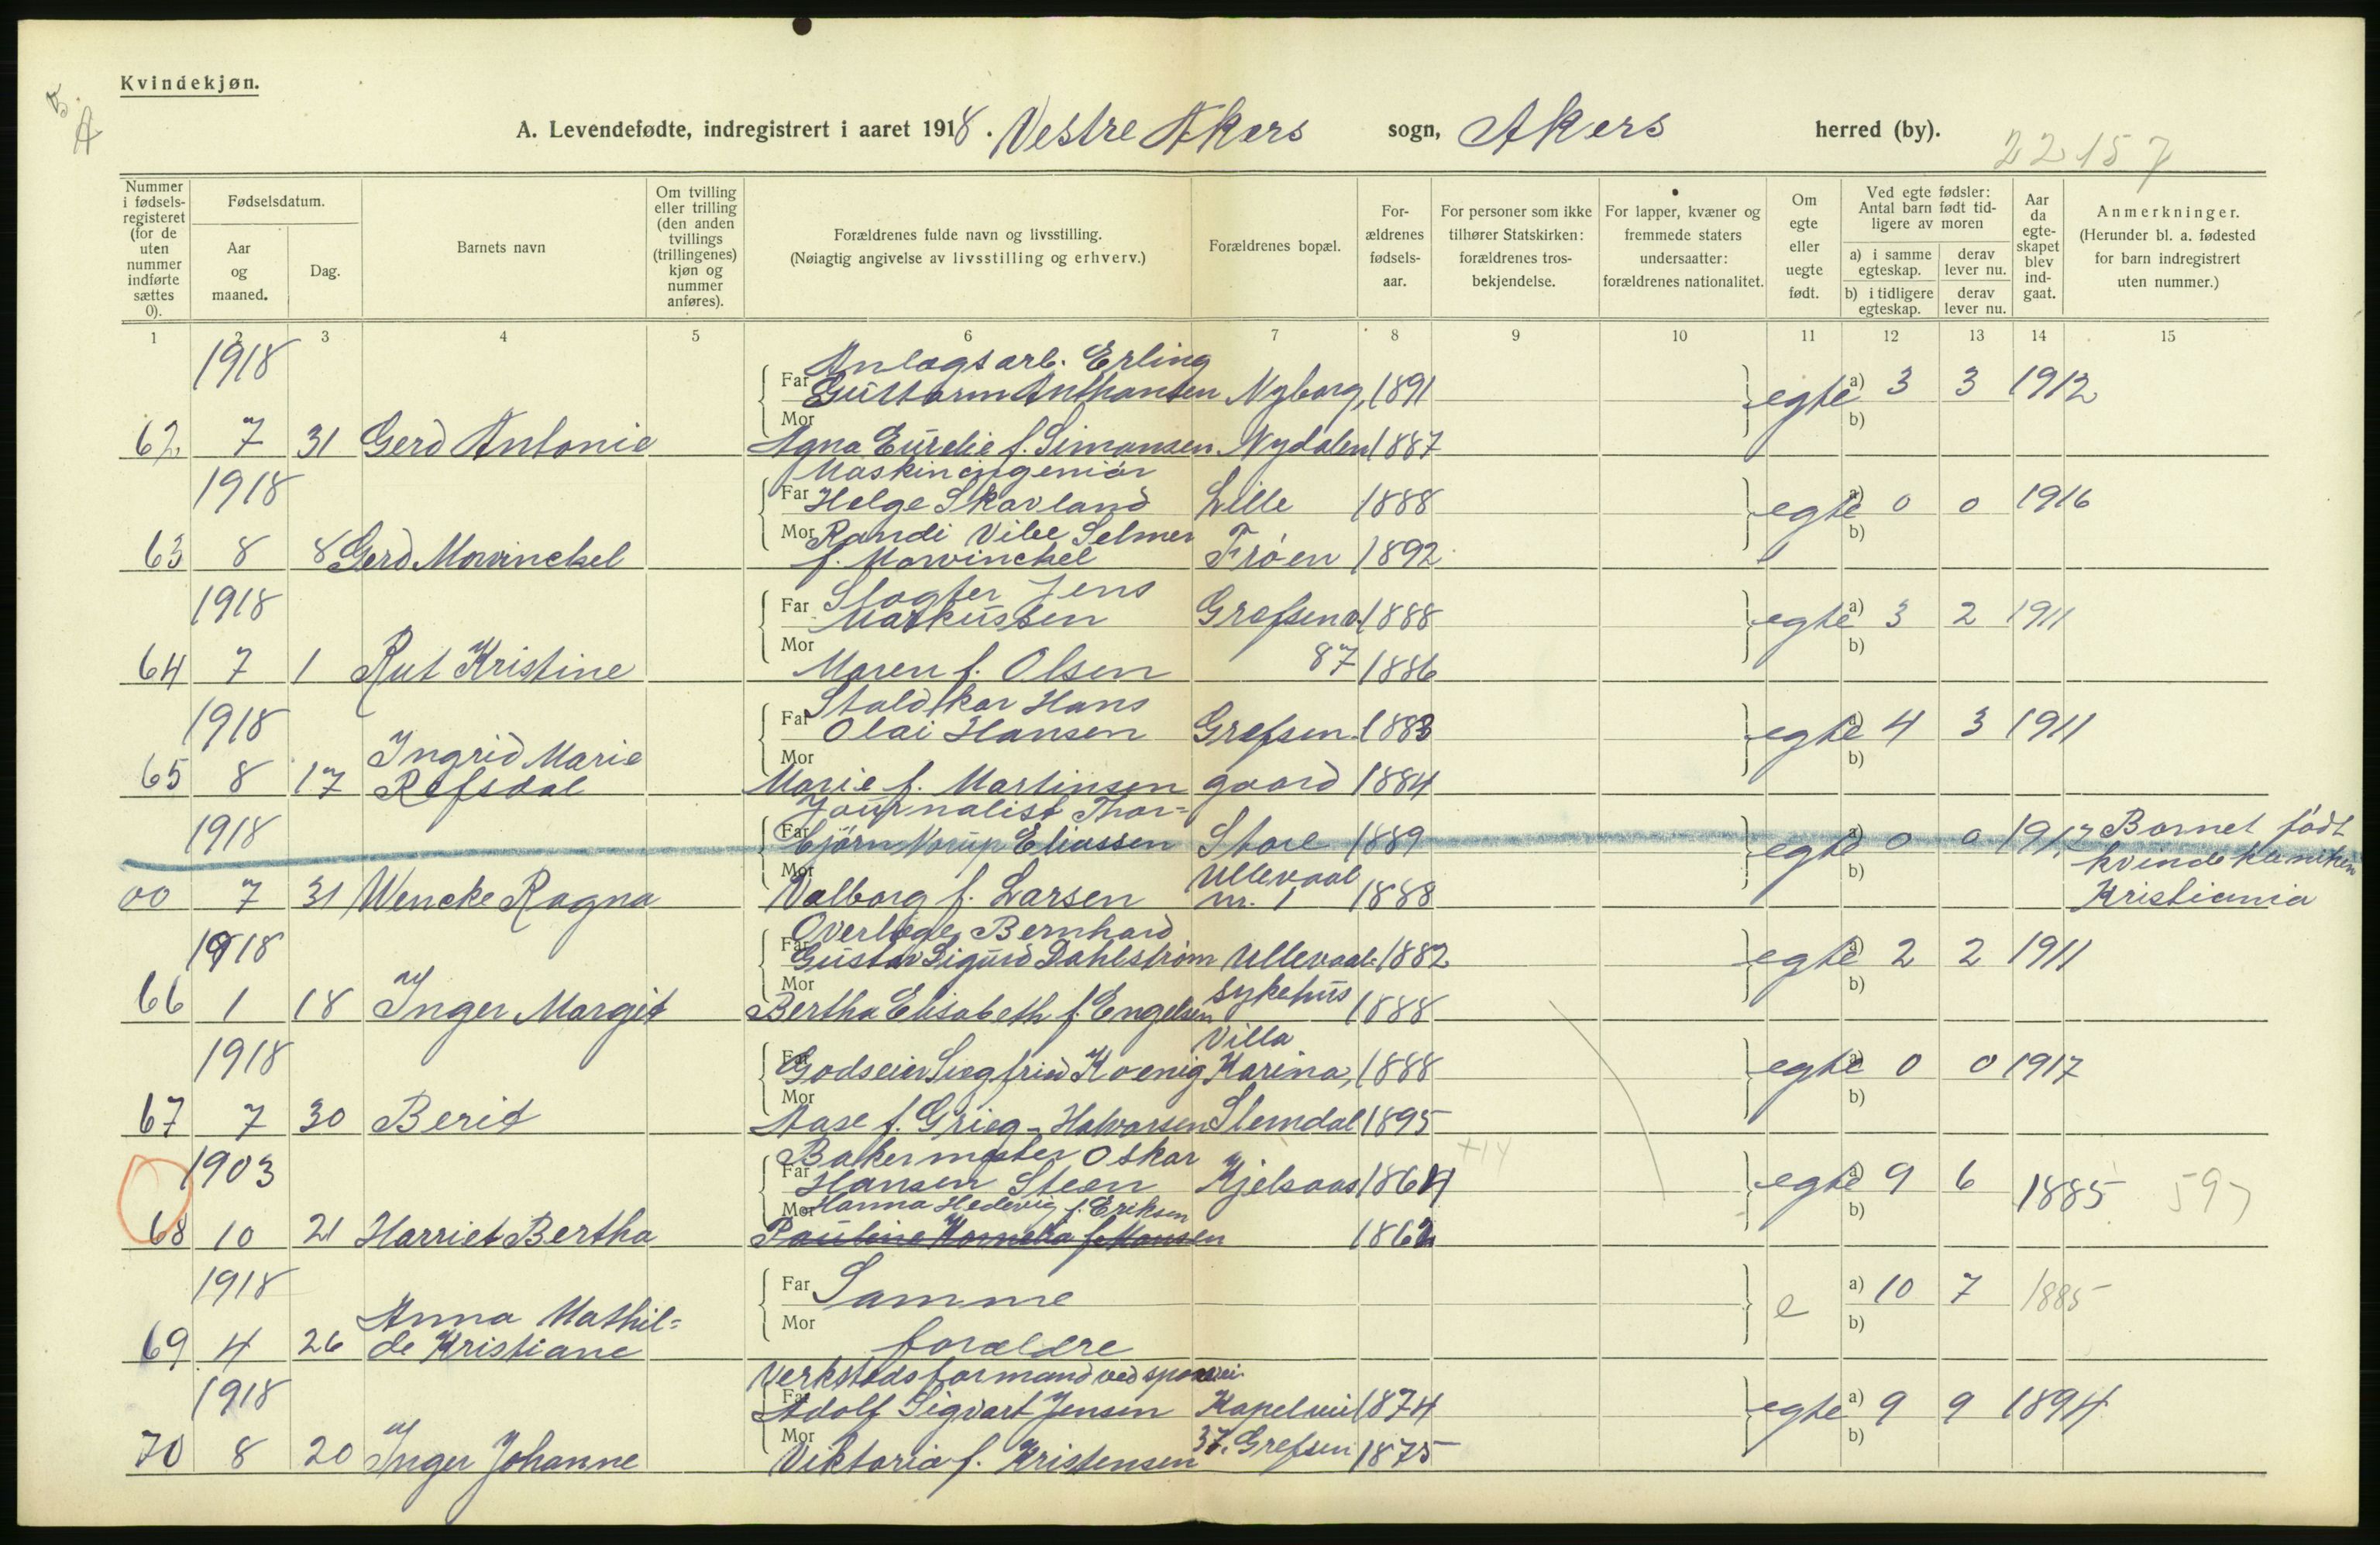 Kvindekjøn.
A. Levendefødte, indregistrert i aaret 1918. Vestre Akers sogn, Akers herred (by).
22157
Nummer i fødselsregisteret (for de uten nummer indførte sættes 0).
Fødselsdatum.
Aar og maaned.
Dag.
Barnets navn
Om tvilling eller trilling (den anden tvillings (trillingenes) kjøn og nummer anføres).
Forældrenes fulde navn og livsstilling.
(Nøiagtig angivelse av livsstilling og erhverv.)
Forældrenes bopæl.
Forældrenes fødselsaar.
For personer som ikke tilhører Statskirken: forældrenes trosbekjendelse.
For lapper, kvæner og fremmede staters undersaatter: forældrenes nationalitet.
Om egte eller uegte født.
Ved egte fødsler: Antal barn født tidligere av moren
a) i samme egteskap.
derav lever nu.
b) i tidligere egteskap.
derav lever nu.
Aar da egteskapet blev indgaat.
Anmerkninger.
(Herunder bl. a. fødested for barn indregistrert uten nummer.)
1 2 3 4 5 6 7 8 9 10 11 12 13 14 15
1918 Anlægsarb. Erling
Far Guttorm Anthonsen Nyborg, 1891 egte a) 3 3 1912
Mor b)
62 7 31 Gerd Antonie Agna Eurelie f. Simonsen Nydalen 1887
1918 Maskiningeniör
Far Helge Skavland Lille 1888 egte a) 0 0 1916
Mor Randi Vibe Selmer b)
63 8 8 Gerd Mowinckel f. Mowinckel Frøen 1892
1918 Slagter Jens
Far Markussen Grefsenv. 1888 egte a) 3 2 1911
Mor b)
64 7 1 Rut Kristine Maren f. Olsen 87 1886
1918 Staldkar Hans
Far Olai Hansen Grefsen 1883 egte a) 4 3 1911
Ingrid Marie Mor b)
65 8 17 Refsdal Marie f. Martinsen gaard 1884
1918 Journalist Thor=
Far björn Eliassen Store 1889 egte a) 0 0 1917 Barnet født
Mor Ullevaal b) kvindekliniken
00 7 31 Wencke Ragna Valborg f. Larsen nr. 1 1888 Kristiania
1918 Overlæge Bernhard
Far Gustav Sigurd Dahlström Ullevaal 1882 egte a) 2 2 1911
Mor sykehus b)
66 1 18 Inger Margit Bertha Elisabeth f. Engelsen 1888
Villa
1918 Far Godseier Siegfried Koenig Karina, 1888 egte a) 0 0 1917
Mor b)
67 7 30 Berit Aase f. Grieg-Halvorsen Slemdal 1895
1903 Bakermester Oskar +14
Far Hansen Steen Kjelsaas 1864 egte a) 9 6 1885 597
Mor Hanna Hedevig f. Eriksen b)
68 10 21 Harriet Bertha Pauline Kornelia f. Hansen 1862
1918 Far Samme e a) 10 7 1885
Anna Mathil= Mor b)
69 4 26 de Kristiane forældre
Verkstedsformand ved sporvei.
1918 Far Adolf Sigvart Jensen Kapelvei 1874 egte a) 9 9 1894
Mor 37. Grefsen b)
70 8 20 Inger Johanne Viktoria f. Kristensen 1875